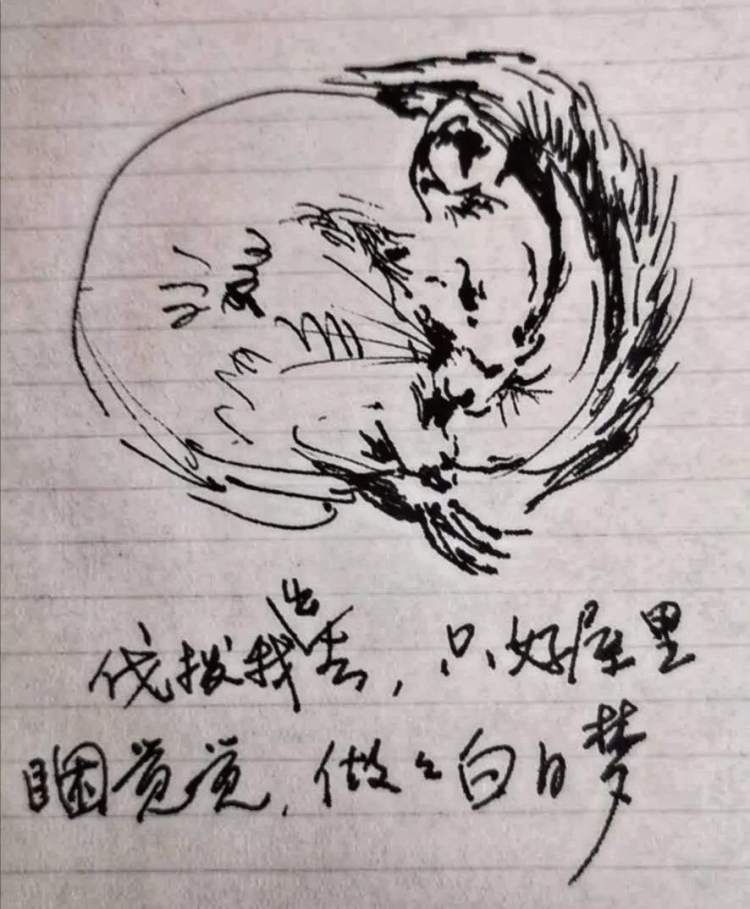 伐拨我出去，只好屋里
睏觉觉，做々白日梦